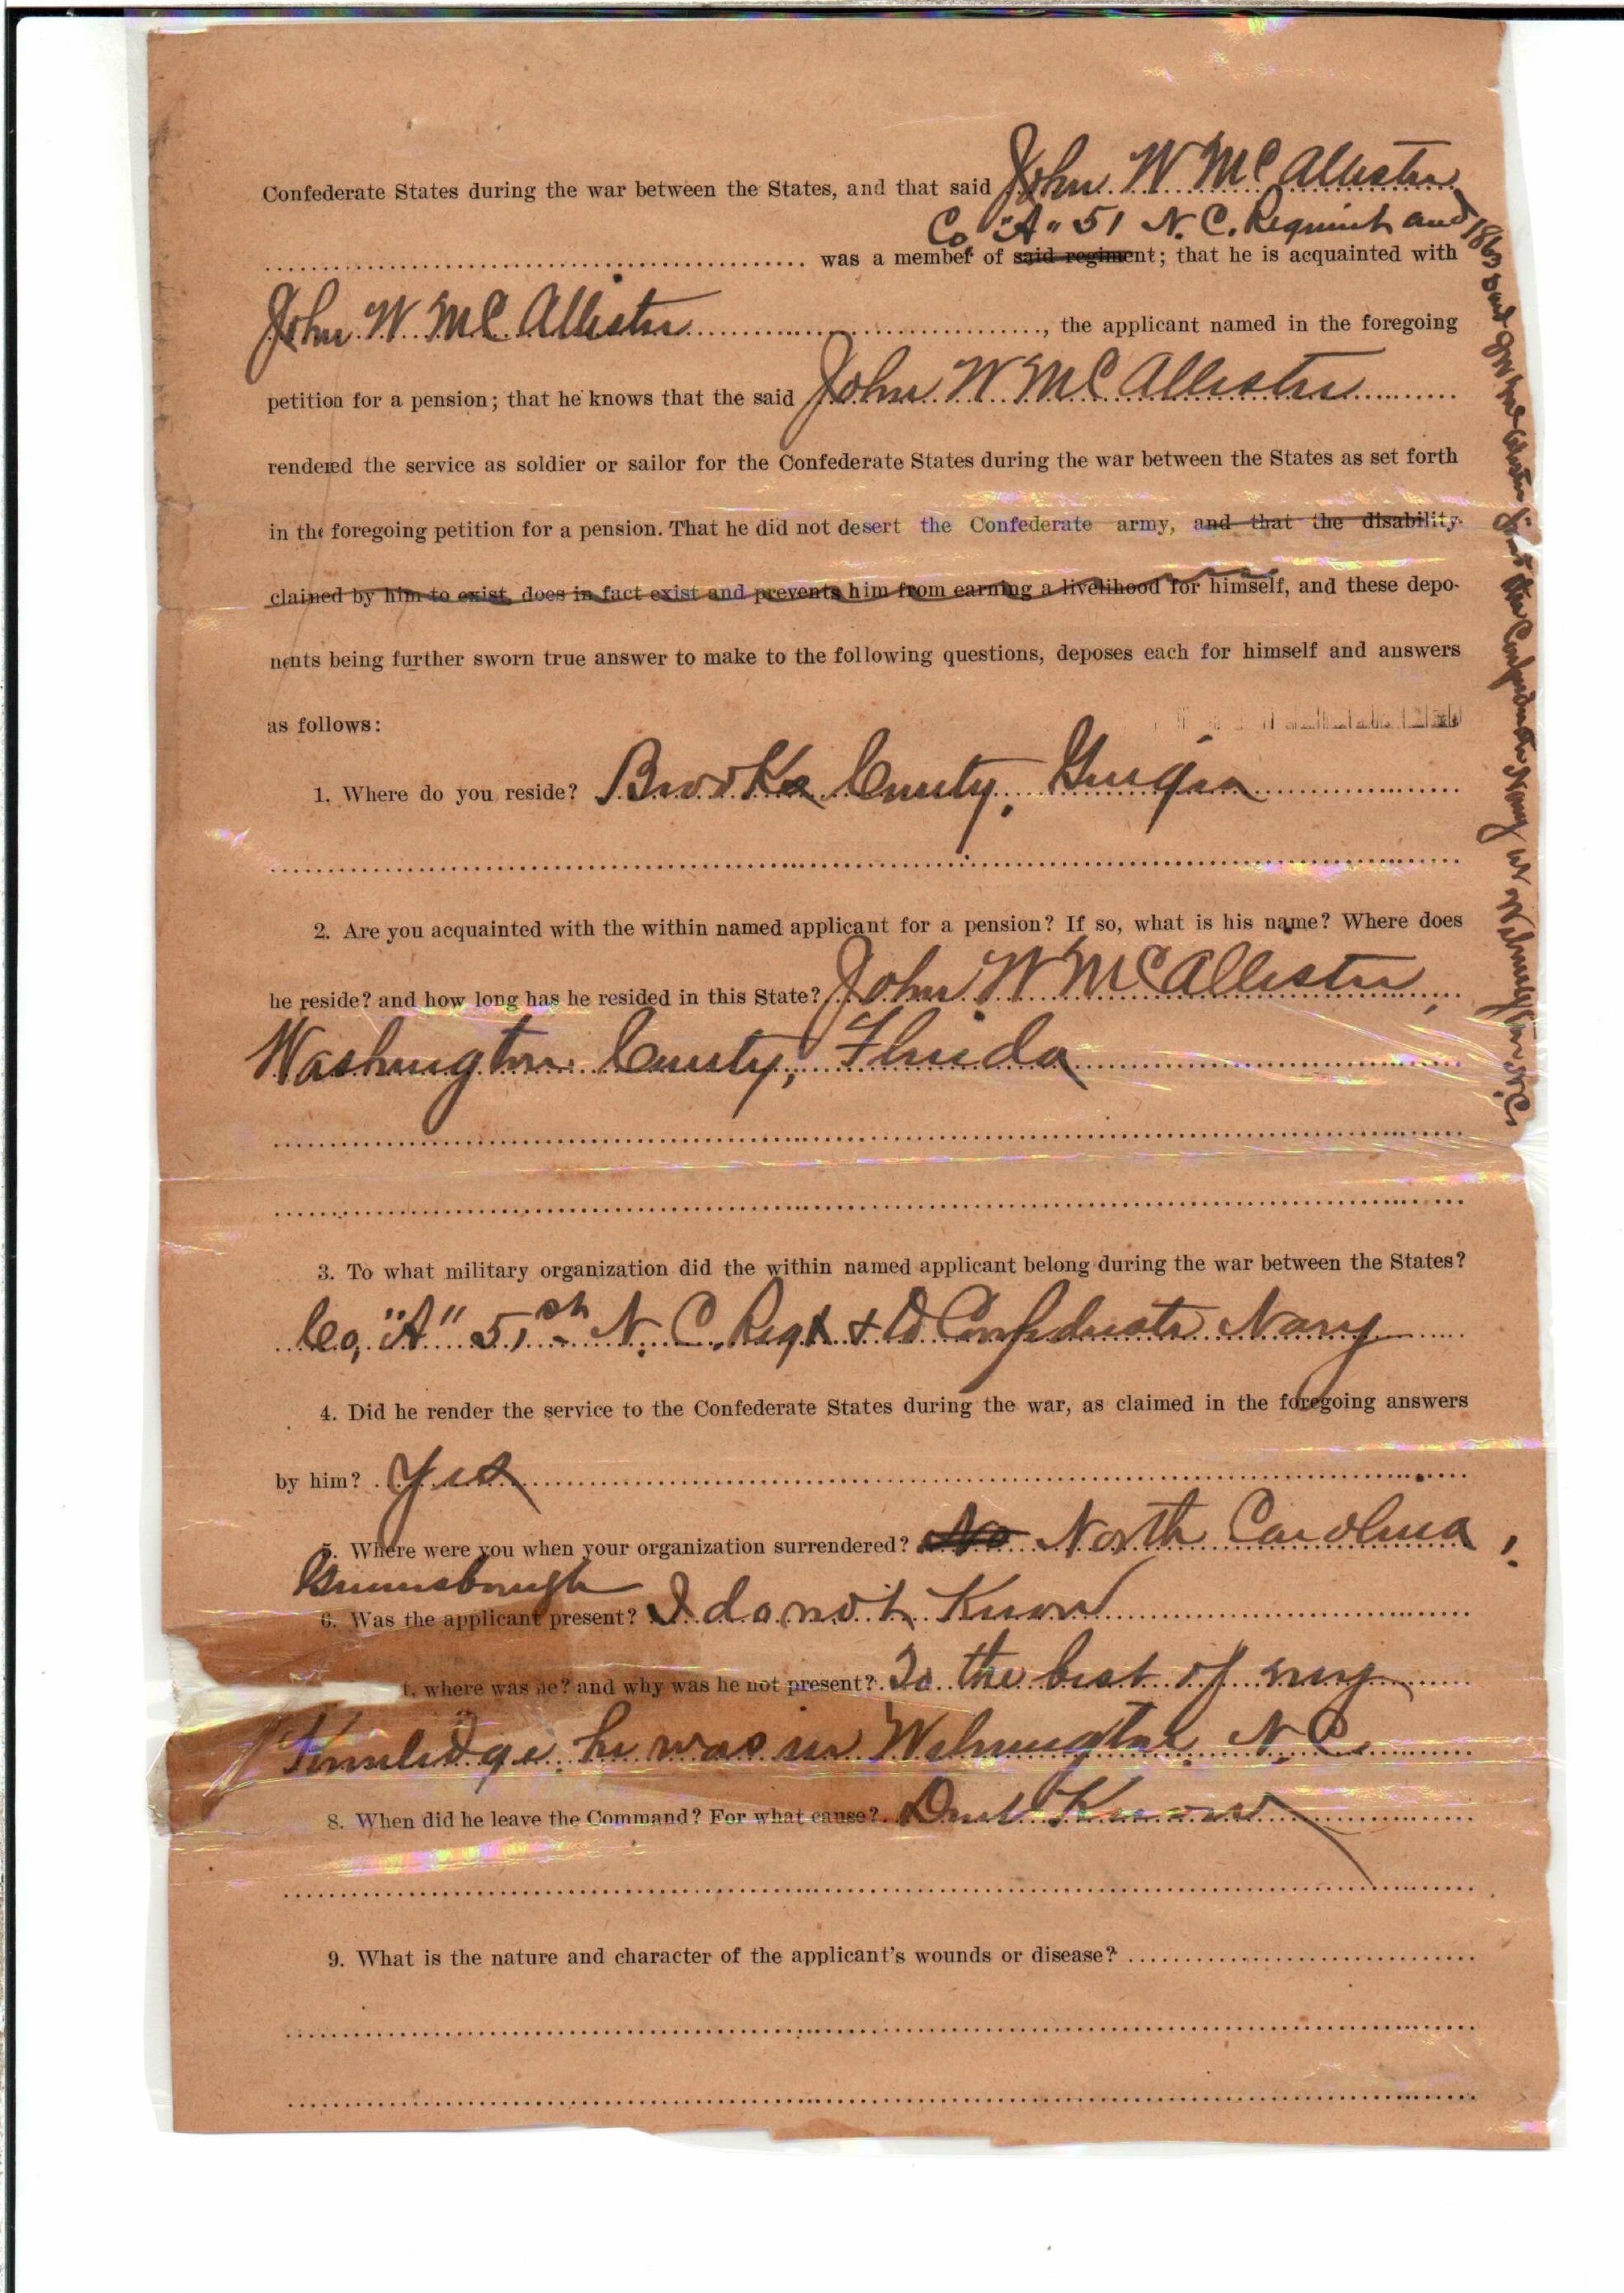 Confederate States during the war between the States, and that said John W McAllister
Co "A" 51 N. C. Regiment and
was a member of said regiment; that he is acquainted with
John W McAllister, the applicant named in the foregoing
petition for a pension; that he knows that the said John W McAllister
rendered the service as soldier or sailor for the Confederate States during the war between the States as set forth
in the foregoing petition for a pension. That he did not desert the Confederate army, and that the disability
claimed by him to exist, does in fact exist and prevents him from earning a livelihood for himself, and these depo-
nents being further sworn true answer to make to the following questions, deposes each for himself and answers
as follows:
1. Where do you reside? Brooks County, Georgia
2. Are you acquainted with the within named applicant for a pension? If so, what is his name? Where does
he reside? and how long has he resided in this State? John W McAllister,
Washington County, Florida
3. To what military organization did the within named applicant belong during the war between the States?
Co, "A" 51st N. C. Regt & Confederate Navy
4. Did he render the service to the Confederate States during the war, as claimed in the foregoing answers
by him? Yes
5. Where were you when your organization surrendered? No North Carolina,
Greensborough
6. Was the applicant present? I do not Know
t, where was he? and why was he not present? To the best of my
Knowledge he was in Wilmington N.C.
8. When did he leave the Command? For what cause? Dont Know
9. What is the nature and character of the applicant's wounds or disease?
1863 and the Confederate Navy at Wilmington N.C.